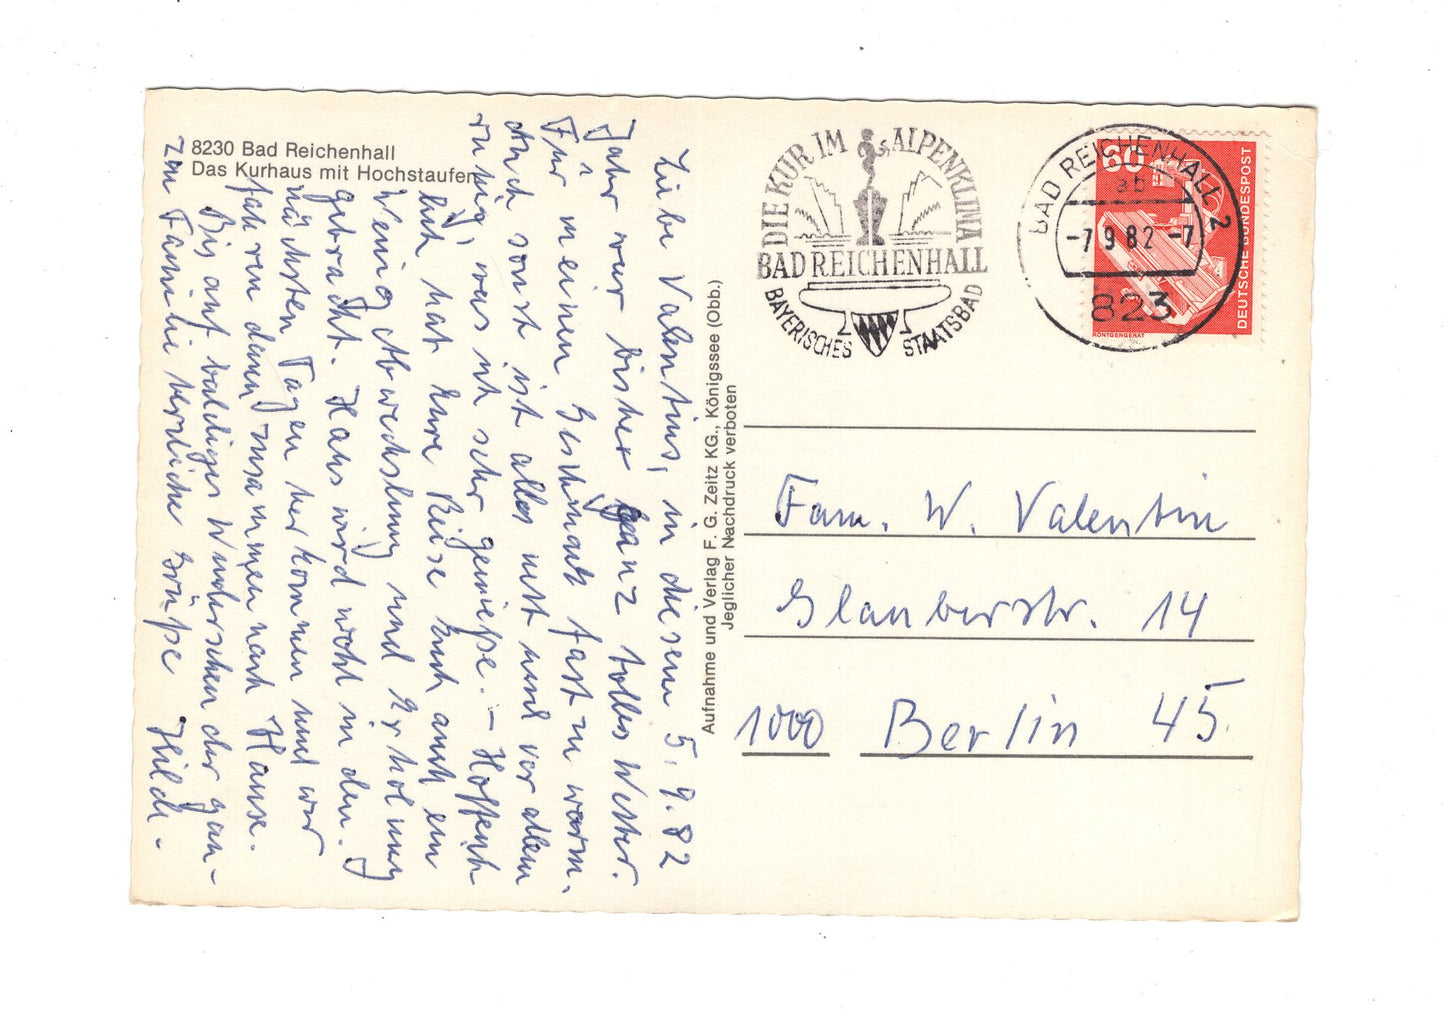 8230 Bad Reichenhall
Das Kurhaus mit Hochstaufen
5.9.82
Liebe Valentins, in diesem
Jahr war bisher ganz tolles Wetter.
Für meinen Geschmack fast zu warm.
Auch sonst ist alles nett und vor allem
ruhig, was ich sehr genieße. – Hoffent
lich hat Eure Reise Euch auch ein
wenig Abwechslung und Erholung
gebracht. Hans wird wohl in den
nächsten Tagen herkommen und wir
fahren dann zusammen nach Hause.
Bis auf baldiges Wiedersehen der gan-
zen Familie herzliche Grüße Hilde.
Aufnahme und Verlag F. G. Zeitz KG., Königssee (Obb.)
Jeglicher Nachdruck verboten
DIE KUR IM ALPENKLIMA
BAD REICHENHALL
BAYERISCHES STAATSBAD
BAD REICHENHALL 2
ab
-7.9.82-7
823
60
DEUTSCHE BUNDESPOST
RÖNTGENGERÄT
Fam. W. Valentin
Glauberstr. 14
1000 Berlin 45